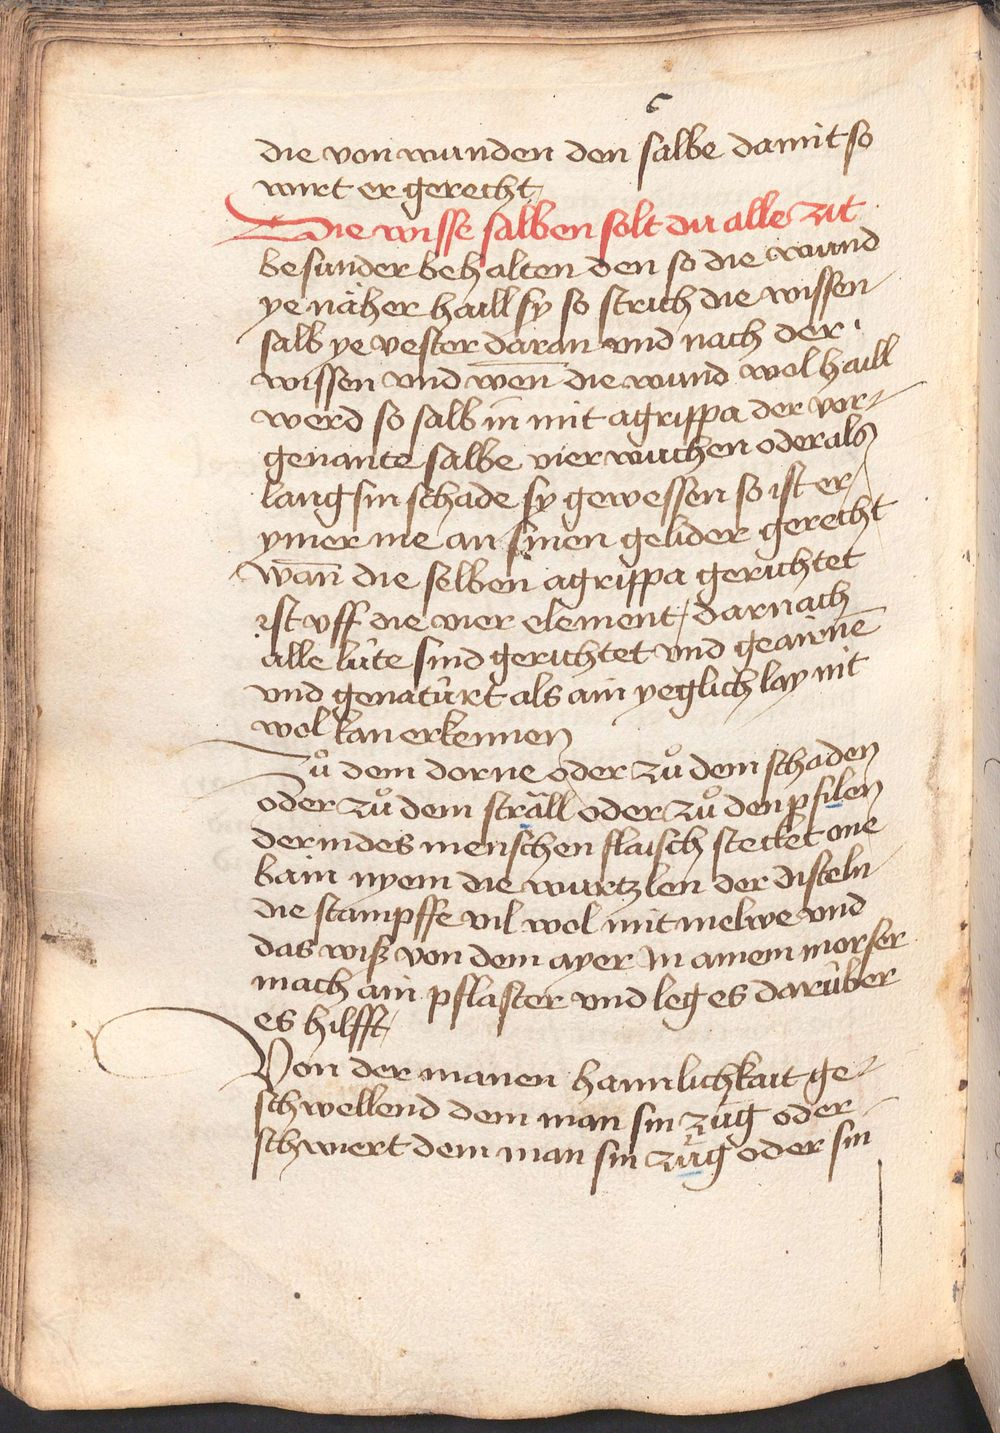 c
die von wunden den salbe damit so
wirt er gerecht
Die wisse salben solt du alle zit
besunder behalten den so die wund
ye näher haill sy so strich die wissen
salb ye vester daran vnd nach der
wissen vnd wen̄ die wund wol haill
werd so salb in̄ mit agrippa der vor-
genante salbe vier wuchen oder als
lang sin schade sy gewessen so ist er
ymer me an sinen gelider gerecht
wan̄ die selben agrippa gerichtet
ist vff die vier element / darnach
alle lüte sind gerichtet vnd geairne͞
vnd genatürt als ain yeglich lay nit
wol kan erkennen
Zů dem dorne oder zů dem schaden
oder zů dem sträll oder zů den pfilen
der in des menschen flaisch stecket one
bain nyem die wurtzlen der disteln
die stampffe vil wol mit melwe vnd
das wiß von dem ayer In ainem morser
mach ain pflaster vnd leg es darüber
es hilfft
Von der manen hamlichkait ge-
schwellend dem man sin züg oder
schwiert dem man sin züg oder sin